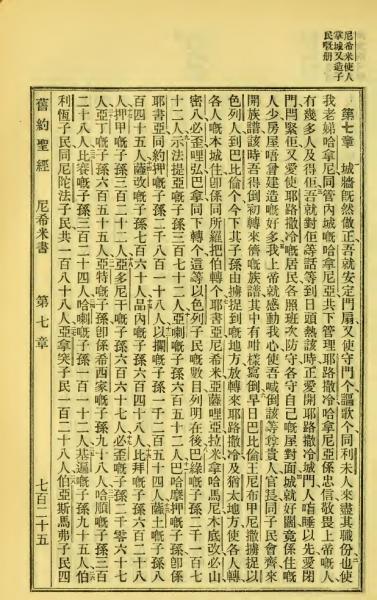 尼希米使人
掌城又造子
民嘅册
第七章 城牆既然做正吾就安定門扇又使守門个謳歌个同利未人來盡其職份也使
我老娣哈拿尼同管內城嘅哈拿尼亞在下管理耶路撒冷哈拿尼亞係忠信敬畏上帝嘅人
有幾多人及得佢吾就對佢等話等到日頭熱該時正愛開耶路撒冷城門人唔睡以先愛閉
門閂緊佢又愛使耶路撒冷嘅居民各照班次防守各守自己嘅屋對面城就好闊竟係住嘅
人少房屋唔曾建造嘅好多我上帝就感動我心使吾喊倒該等尊貴人官長同子民會齊來
開族譜該時吾得倒初轉來儕嘅族譜書中有咁樣寫倒早日巴比倫王尼布甲尼撒擄捉以
色列人到巴比倫个今下其子孫由擄捉到嘅地方放轉來耶路撒冷及猶太地方使各人轉
各人嘅本城住即係同所羅把伯轉个耶書亞尼希米亞薩哩亞拉米拿哈馬尼木底改必山
密八必歪哩弘巴拿同下轉个這等以色列子民嘅數目列明在後巴綠嘅子孫二千一百七
十二人示法提亞嘅子孫三百七十二人亞喇嘅子孫六百五十二人巴哈摩押嘅子孫即係
耶書亞同約押嘅子孫二千八百一十八人以攔嘅子孫一千二百五十四人薩土嘅子孫八
百四十五人薩改嘅子孫七百六十人品內嘅子孫六百四十八人比拜嘅子孫六百二十八
人押甲嘅子孫二千三百二十二人亞多尼干嘅子孫六百六十七人必歪嘅子孫二千零六十七
人亞丁嘅子孫六百五十五人亞特嘅子孫即係希西家嘅子孫九十八人哈順嘅子孫三百
二十八人比賽嘅子孫三百二十四人哈喇嘅子孫一百一十二人基遍嘅子孫九十五人伯
利恆子民同尼陀法子民共一百八十八人亞拿突子民一百二十八人伯亞斯馬弗子民四
舊約聖經 尼希米書 第七章 七百二十五